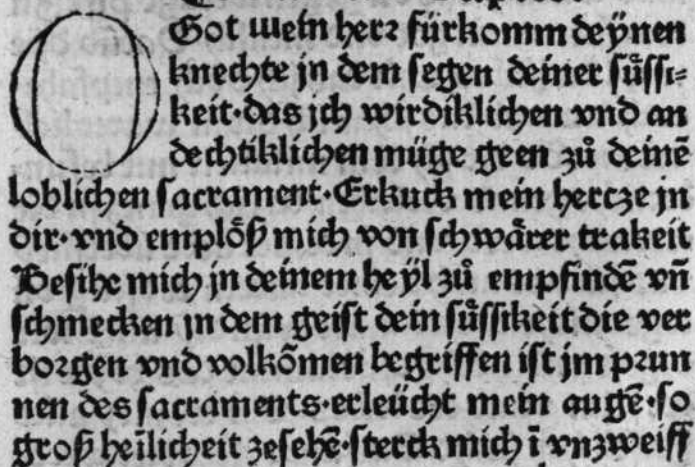 O Got mein herꝛ fürkomm deÿnen
knechte jn dem segen deiner sůssi⸗
keit·das jch wirdiklichen vnd an
dechtiklichen müge geen zů deinē
loblichen sacrament·Erkuck mein hercze jn
dir·vnd emplöß mich von schwårer trakeit
Besihe mich jn deinem heÿl zů empfindē vñ
schmecken jn dem geist dein sůssikeit die ver
boꝛgen vnd volkōmen begriffen ist jm pꝛun
nen des sacraments·erleücht mein augē·so
groß heilicheit zesehē·sterck mich ī vnzweiff